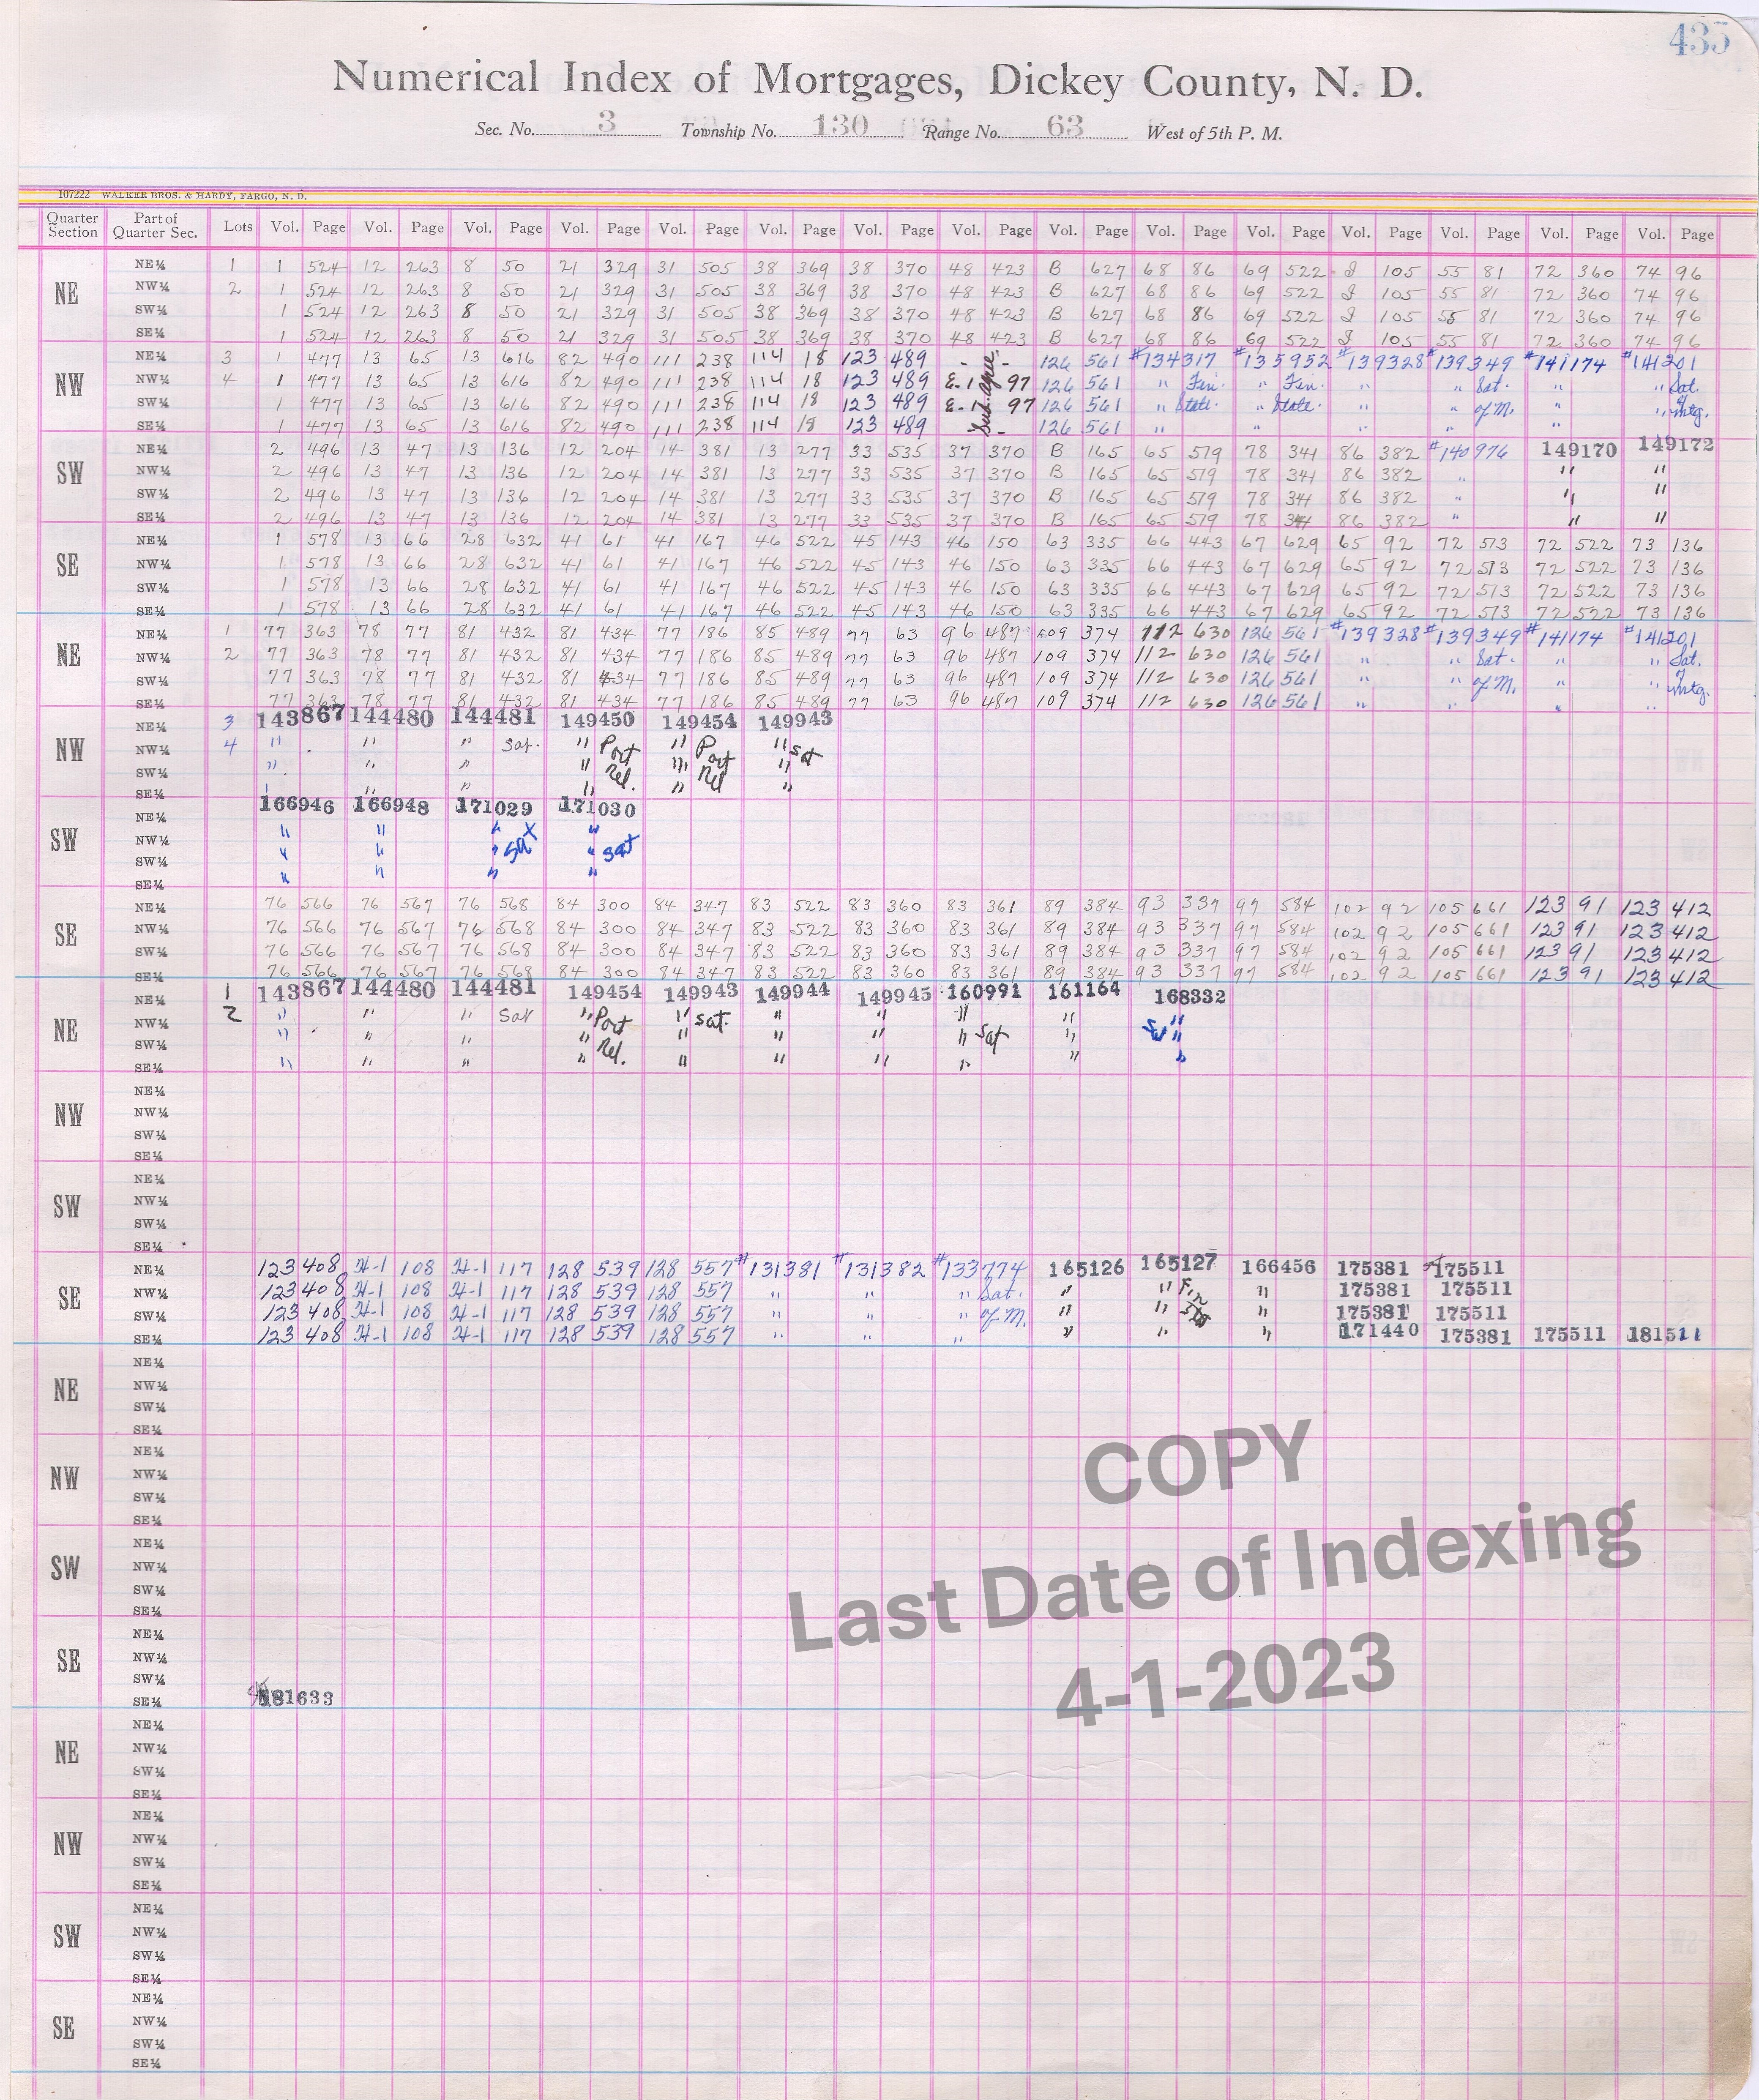 435
Numerical Index of Mortgages, Dickey County, N. D.
Sec. No. 3 Township No. 130 Range No. 63 West of 5th P. M.
107222 WALKER BROS. & HARDY, FARGO, N. D.
Quarter Section Part of Quarter Sec. Lots Vol. Page Vol. Page Vol. Page Vol. Page Vol. Page Vol. Page Vol. Page Vol. Page Vol. Page Vol. Page Vol. Page Vol. Page Vol. Page Vol. Page Vol. Page
NE NE¼ 1 1 524 12 263 8 50 21 329 31 505 38 369 38 370 48 423 B 627 68 86 69 522 105 55 81 72 360 74 96
NW¼ 2 1 524 12 263 8 50 21 329 31 505 38 369 38 370 48 423 B 627 68 86 69 522 105 55 81 72 360 74 96
SW¼ 1 524 12 263 8 50 21 329 31 505 38 369 38 370 48 423 B 627 68 86 69 522 105 55 81 72 360 74 96
SE¼ 1 524 12 263 8 50 21 329 31 505 38 369 38 370 48 423 B 627 68 86 69 522 105 55 81 72 360 74 96
NW NE¼ 3 1 477 13 65 13 616 82 490 111 238 114 18 123 489 - - 126 561 #134317 #135952 #139328 #139349 #141174 #141201
NW¼ 4 1 477 13 65 13 616 82 490 111 238 114 18 123 489 E-1 97 126 561 " Fin. " Fin. " " Sat. " " Sat.
SW¼ 1 477 13 65 13 616 82 490 111 238 114 18 123 489 E-1 97 126 561 " State. " State. " " of M. " " of mtg.
SE¼ 1 477 13 65 13 616 82 490 111 238 114 18 123 489 - - 126 561 " " " " "
Sub. agree.
SW NE¼ 2 496 13 47 13 136 12 204 14 381 13 277 33 535 37 370 B 165 65 579 78 341 86 382 #140976 149170 149172
NW¼ 2 496 13 47 13 136 12 204 14 381 13 277 33 535 37 370 B 165 65 579 78 341 86 382 " " "
SW¼ 2 496 13 47 13 136 12 204 14 381 13 277 33 535 37 370 B 165 65 579 78 341 86 382 " " "
SE¼ 2 496 13 47 13 136 12 204 14 381 13 277 33 535 37 370 B 165 65 579 78 341 86 382 " " "
SE NE¼ 1 578 13 66 28 632 41 61 41 167 46 522 45 143 46 150 63 335 66 443 67 629 65 92 72 513 72 522 73 136
NW¼ 1 578 13 66 28 632 41 61 41 167 46 522 45 143 46 150 63 335 66 443 67 629 65 92 72 513 72 522 73 136
SW¼ 1 578 13 66 28 632 41 61 41 167 46 522 45 143 46 150 63 335 66 443 67 629 65 92 72 513 72 522 73 136
SE¼ 1 578 13 66 28 632 41 61 41 167 46 522 45 143 46 150 63 335 66 443 67 629 65 92 72 513 72 522 73 136
NE NE¼ 1 77 363 78 77 81 432 81 434 77 186 85 489 77 63 96 487 109 374 112 630 126 561 #139328 #139349 #141174 #141201
NW¼ 2 77 363 78 77 81 432 81 434 77 186 85 489 77 63 96 487 109 374 112 630 126 561 " " Sat. " " Sat.
SW¼ 77 363 78 77 81 432 81 434 77 186 85 489 77 63 96 487 109 374 112 630 126 561 " " of M. " " of mtg.
SE¼ 77 363 78 77 81 432 81 434 77 186 85 489 77 63 96 487 109 374 112 630 126 561 " " " "
NW NE¼ 3 143867 144480 144481 149450 149454 149943
NW¼ 4 " " " Sat. " Part " Part " Sat
SW¼ " " " " Rel. " Rel "
SE¼ " " " " " "
SW NE¼ 166946 166948 171029 171030
NW¼ " " " X "
SW¼ " " " Sat " Sat
SE¼ " " " "
SE NE¼ 76 566 76 567 76 568 84 300 84 347 83 522 83 360 83 361 89 384 93 337 97 584 102 92 105 661 123 91 123 412
NW¼ 76 566 76 567 76 568 84 300 84 347 83 522 83 360 83 361 89 384 93 337 97 584 102 92 105 661 123 91 123 412
SW¼ 76 566 76 567 76 568 84 300 84 347 83 522 83 360 83 361 89 384 93 337 97 584 102 92 105 661 123 91 123 412
SE¼ 76 566 76 567 76 568 84 300 84 347 83 522 83 360 83 361 89 384 93 337 97 584 102 92 105 661 123 91 123 412
NE NE¼ 1 143867 144480 144481 149454 149943 149944 149945 160991 161164 168332
NW¼ 2 " " " Sat " Part " Sat. " " " " "
SW¼ " " " " Rel. " " " " Sat " Sat "
SE¼ " " " " " " " " " "
NW NE¼
NW¼
SW¼
SE¼
SW NE¼
NW¼
SW¼
SE¼
SE NE¼ 123 408 H-1 108 H-1 117 128 539 128 557 #131381 #131382 #133774 165126 165127 166456 175381 175511
NW¼ 123 408 H-1 108 H-1 117 128 539 128 557 " " " Sat. " " Fin " 175381 175511
SW¼ 123 408 H-1 108 H-1 117 128 539 128 557 " " " of M. " " " 175381 175511
SE¼ 123 408 H-1 108 H-1 117 128 539 128 557 " " " " " " 171440 175381 175511 181511
NE NE¼
NW¼
SW¼
SE¼
NW NE¼
NW¼
SW¼
SE¼
SW NE¼
NW¼
SW¼
SE¼
SE NE¼
NW¼
SW¼
SE¼ 181633
NE NE¼
NW¼
SW¼
SE¼
NW NE¼
NW¼
SW¼
SE¼
SW NE¼
NW¼
SW¼
SE¼
SE NE¼
NW¼
SW¼
SE¼
COPY
Last Date of Indexing
4-1-2023